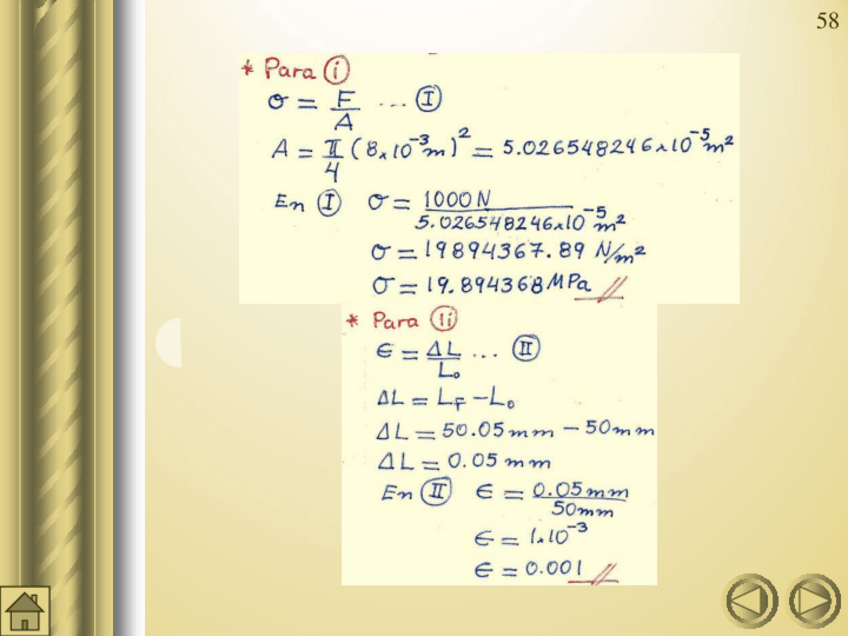 58
* Para (i)
σ = F/A ... (I)
A = π/4 (8x10⁻³m)² = 5.026548246x10⁻⁵m²
En (I) σ = 1000N / 5.026548246x10⁻⁵m²
σ = 19894367.89 N/m²
σ = 19.894368MPa //
* Para (ii)
ϵ = ΔL/L₀ ... (II)
ΔL = LF - L₀
ΔL = 50.05mm - 50mm
ΔL = 0.05 mm
En (II) ϵ = 0.05mm / 50mm
ϵ = 1x10⁻³
ϵ = 0.001 //